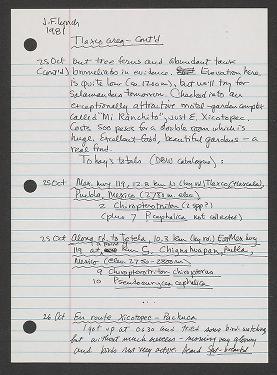 J.F. Lynch
1981
Tlaxco area - Cont'd
25 Oct but tree ferns and abundant tank
(cont'd) bromeliads in evidence. Elevation here
is quite low (ca. 1200 m), but we'll try for
salamanders tomorrow. Checked into an
exceptionally attractive motel-garden complex
called "Mi Ranchito", just E. Xicotepec,
Costs 500 pesos for a double room which is
huge. Excellent food, beautiful gardens - a
real find.
Today's totals (DBW catalogue):
25 Oct Mex. hwy 119, 12.3 km N (by rd) Tlaxco (Tlaxcala),
Puebla, Mexico (2780 m elev)
2 Chiropterotriton (2 spp?)
(plus 7 P. cephalica not collected)
25 Oct Along rd. to Tetela, 10.3 km (by rd.) E of Mex hwy
119 at km S. Chignahuapan, Puebla
Mexico (elev. 2750-2800 m)
9 Chiropterotriton chiropterus
10 Pseudoeurycea cephalica
...
26 Oct En route Xicotepec - Pachuca
I got up at 0630 and tried some bird-watching
but without much success - morning very gloomy
and birds not very active. Heard